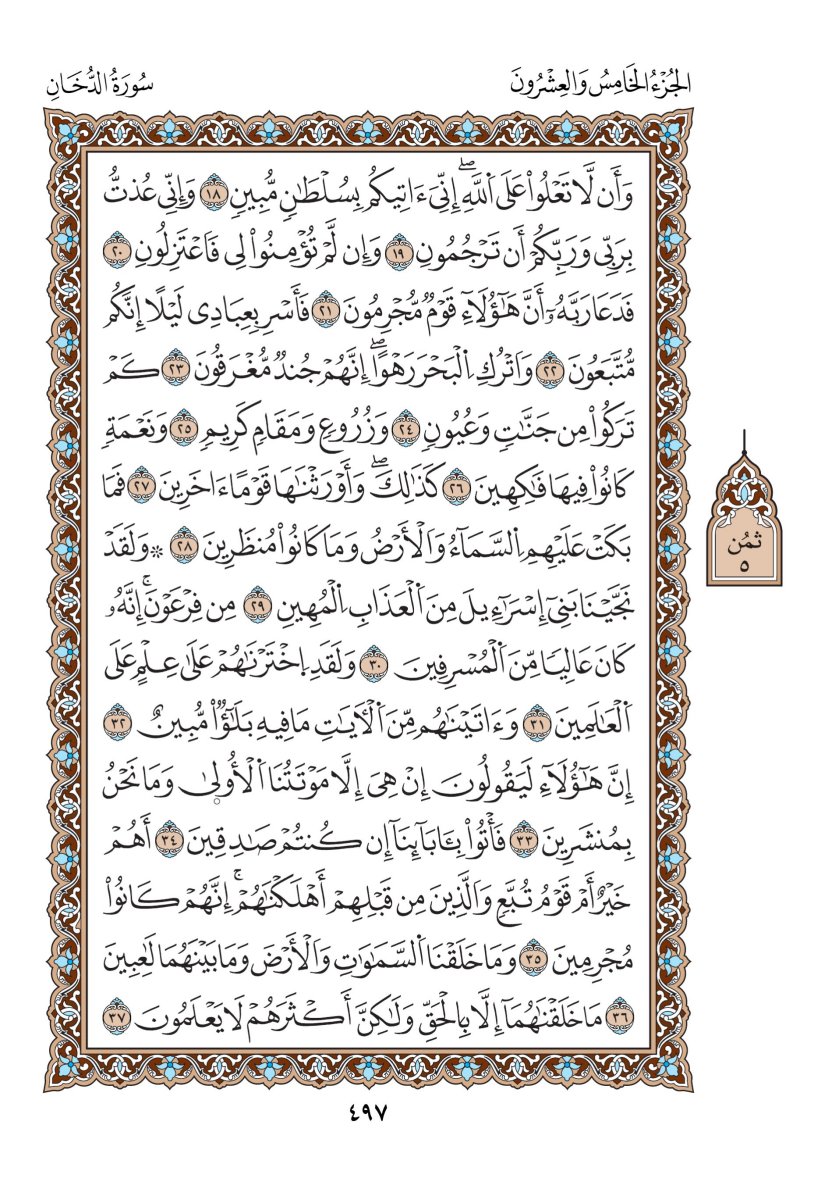 الجُزْءُ الخَامِسُ وَالعِشْرُونَ
سُورَةُ الدُّخَانِ
وَأَن لَّا تَعْلُوا۟ عَلَى اَ۬للَّهِۖ إِنِّيٓ ءَاتِيكُم بِسُلْطَٰنٖ مُّبِينٖ ١٨ وَإِنِّي عُذتُّ
بِرَبِّي وَرَبِّكُمُۥٓ أَن تَرْجُمُونِ ١٩ وَإِن لَّمْ تُؤْمِنُوا۟ لِي فَاعْتَزِلُونِ ٢٠
فَدَعَا رَبَّهُۥٓ أَنَّ هَٰٓؤُلَآءِ قَوْمٞ مُّجْرِمُونَ ٢١ فَأَسْرِ بِعِبَادِي لَيْلًا إِنَّكُم
مُّتَّبَعُونَ ٢٢ وَاتْرُكِ اِ۬لْبَحْرَ رَهْوًاۖ إِنَّهُمْ جُندٞ مُّغْرَقُونَ ٢٣ كَمْ
تَرَكُوا۟ مِن جَنَّٰتٖ وَعُيُونٖ ٢٤ وَزُرُوعٖ وَمَقَامٖ كَرِيمٖ ٢٥ وَنَعْمَةٖ
كَانُوا۟ فِيهَا فَٰكِهِينَ ٢٦ كَذَٰلِكَۖ وَأَوْرَثْنَٰهَا قَوْمًا ءَاخَرِينَ ٢٧ فَمَا
بَكَتْ عَلَيْهِمِ اِ۬لسَّمَآءُ وَالْأَرْضُ وَمَا كَانُوا۟ مُنظَرِينَ ٢٨ ۞وَلَقَدْ
نَجَّيْنَا بَنِيٓ إِسْرَآءِيلَ مِنَ اَ۬لْعَذَابِ اِ۬لْمُهِينِ ٢٩ مِن فِرْعَوْنَۚ إِنَّهُۥ
كَانَ عَالِيٗا مِّنَ اَ۬لْمُسْرِفِينَ ٣٠ وَلَقَدِ اِ۪خْتَرْنَٰهُمْ عَلَىٰ عِلْمٍ عَلَى
اَ۬لْعَٰلَمِينَ ٣١ وَءَاتَيْنَٰهُم مِّنَ اَ۬لْأٓيَٰتِ مَا فِيهِ بَلَٰٓؤٞا۟ مُّبِينٌ ٣٢
إِنَّ هَٰٓؤُلَآءِ لَيَقُولُونَ إِنْ هِيَ إِلَّا مَوْتَتُنَا اَ۬لْأُولۭىٰ وَمَا نَحْنُ
بِمُنشَرِينَ ٣٣ فَأْتُوا۟ بِـَٔابَآئِنَآ إِن كُنتُمْ صَٰدِقِينَ ٣٤ أَهُمْ
خَيْرٌ أَمْ قَوْمُ تُبَّعٖ وَالَّذِينَ مِن قَبْلِهِمْۚ أَهْلَكْنَٰهُمْۚ إِنَّهُمْ كَانُوا۟
مُجْرِمِينَ ٣٥ وَمَا خَلَقْنَا اَ۬لسَّمَٰوَٰتِ وَالْأَرْضَ وَمَا بَيْنَهُمَا لَٰعِبِينَ
٣٦ مَا خَلَقْنَٰهُمَآ إِلَّا بِالْحَقِّ وَلَٰكِنَّ أَكْثَرَهُمْ لَا يَعْلَمُونَ ٣٧
ثُمُن
٥
٤٩٧